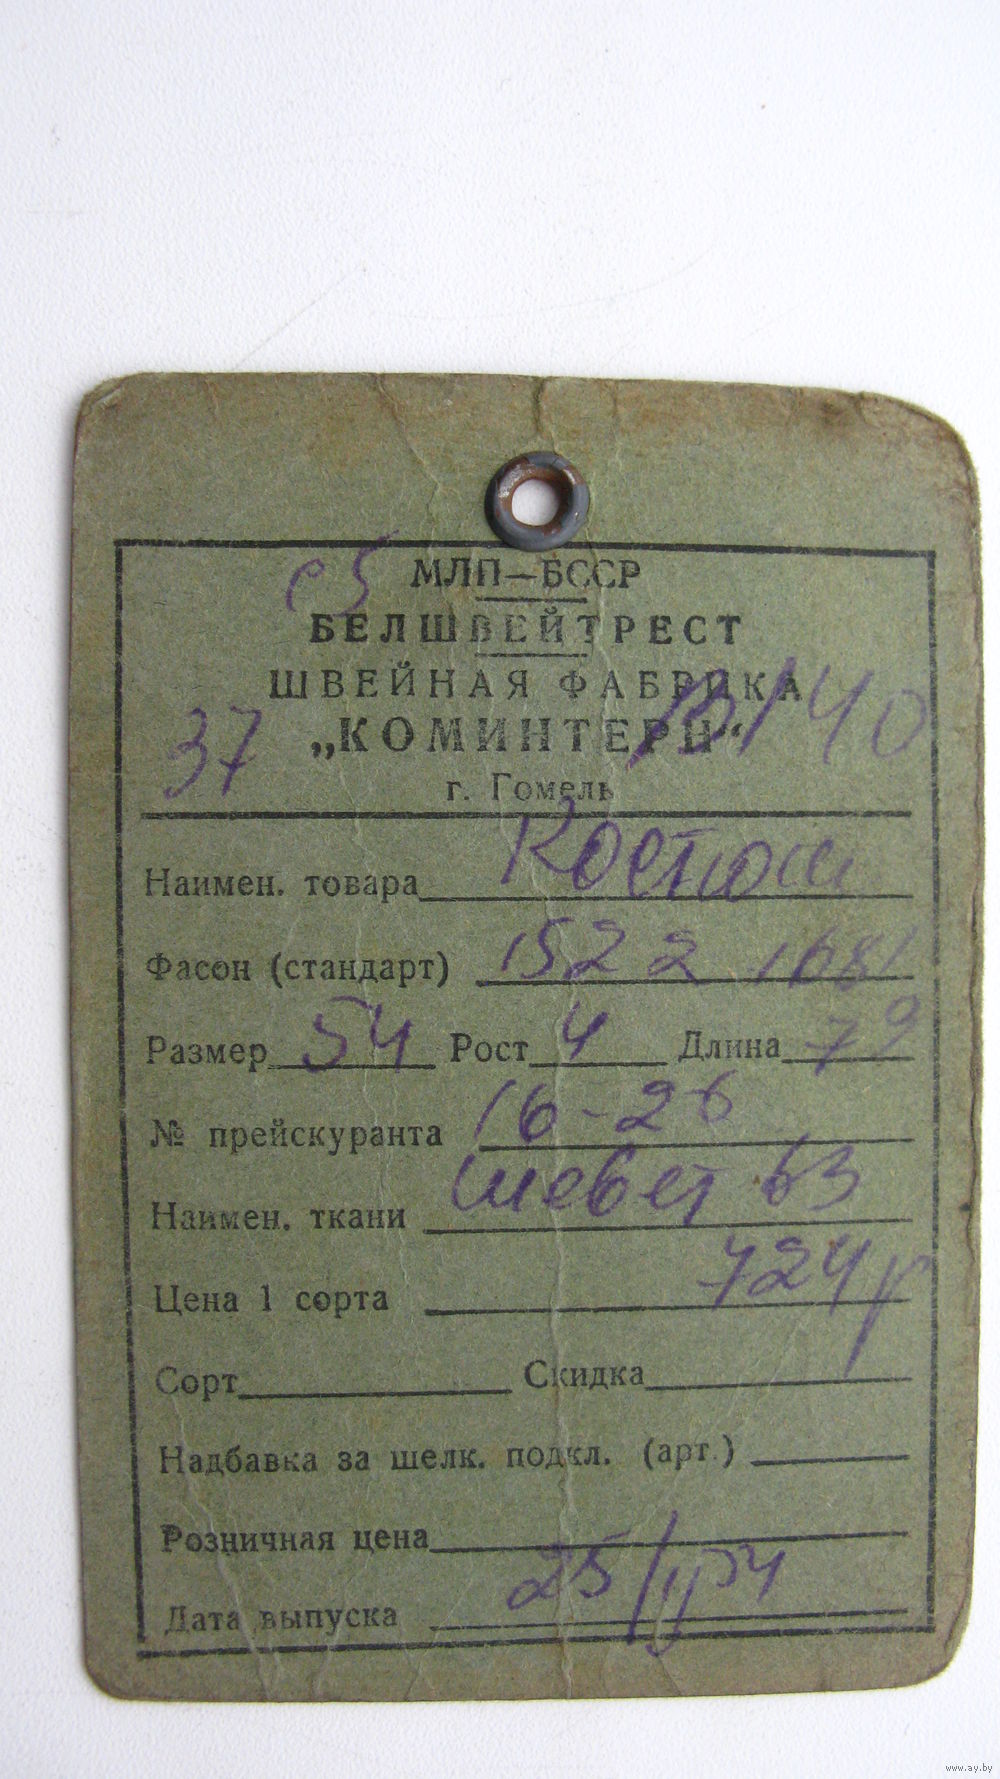 с5
МЛП—БССР
БЕЛШВЕЙТРЕСТ
ШВЕЙНАЯ ФАБРИКА
„КОМИНТЕРН“
37 140
г. Гомель
Наимен. товара Костюм
Фасон (стандарт) 1522 1681
Размер 54 Рост 4 Длина 79
№ прейскуранта 16-26
Наимен. ткани шевет 63
Цена 1 сорта 724р
Сорт Скидка
Надбавка за шелк. подкл. (арт.)
Розничная цена
Дата выпуска 25/ 54
www.ay.by